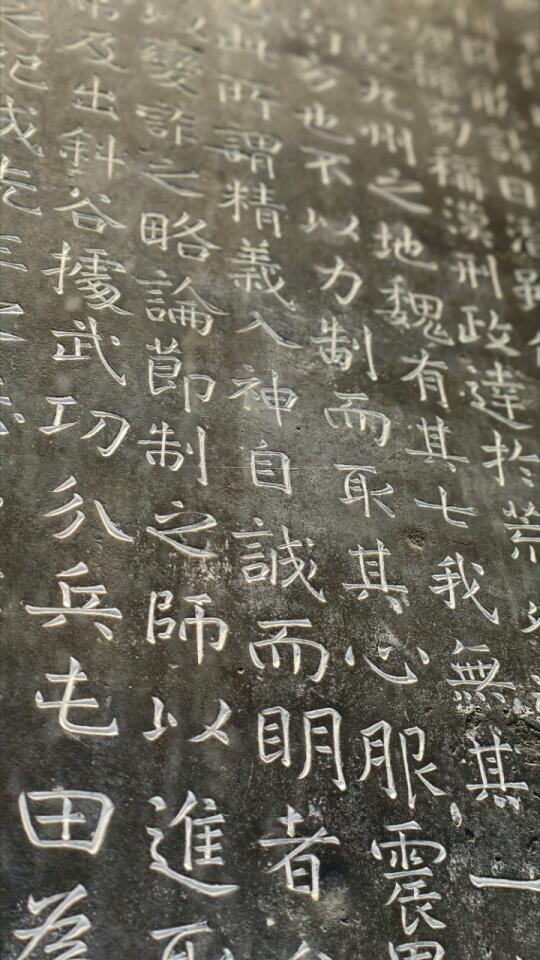 曰
稱漢刑政達於荒
九州之地魏有其七我無其一
也不以力制而取其心服震
此所謂精義入神自誠而眀者
以變詐之略論節制之師以進取
及出斜谷據武功分兵屯田為
之